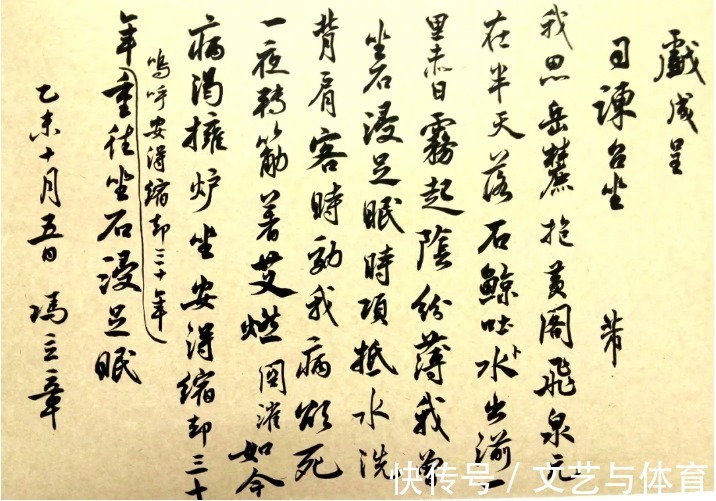 戲成呈
司諫台坐 芾
我思岳麓抱黃閣飛泉元
在半天落石鯨吐水出湔一
里赤日霧起陰紛薄我曾
坐石浸足眠時項抵水洗
背肩客時效我病欲死
一夜轉筋著艾燃關灌如今
病渴擁爐坐安得縮却三十
嗚呼安得縮却三十年
年重往坐石浸足眠
乙未十月五日 馮立章
快传号 / 文艺与体育